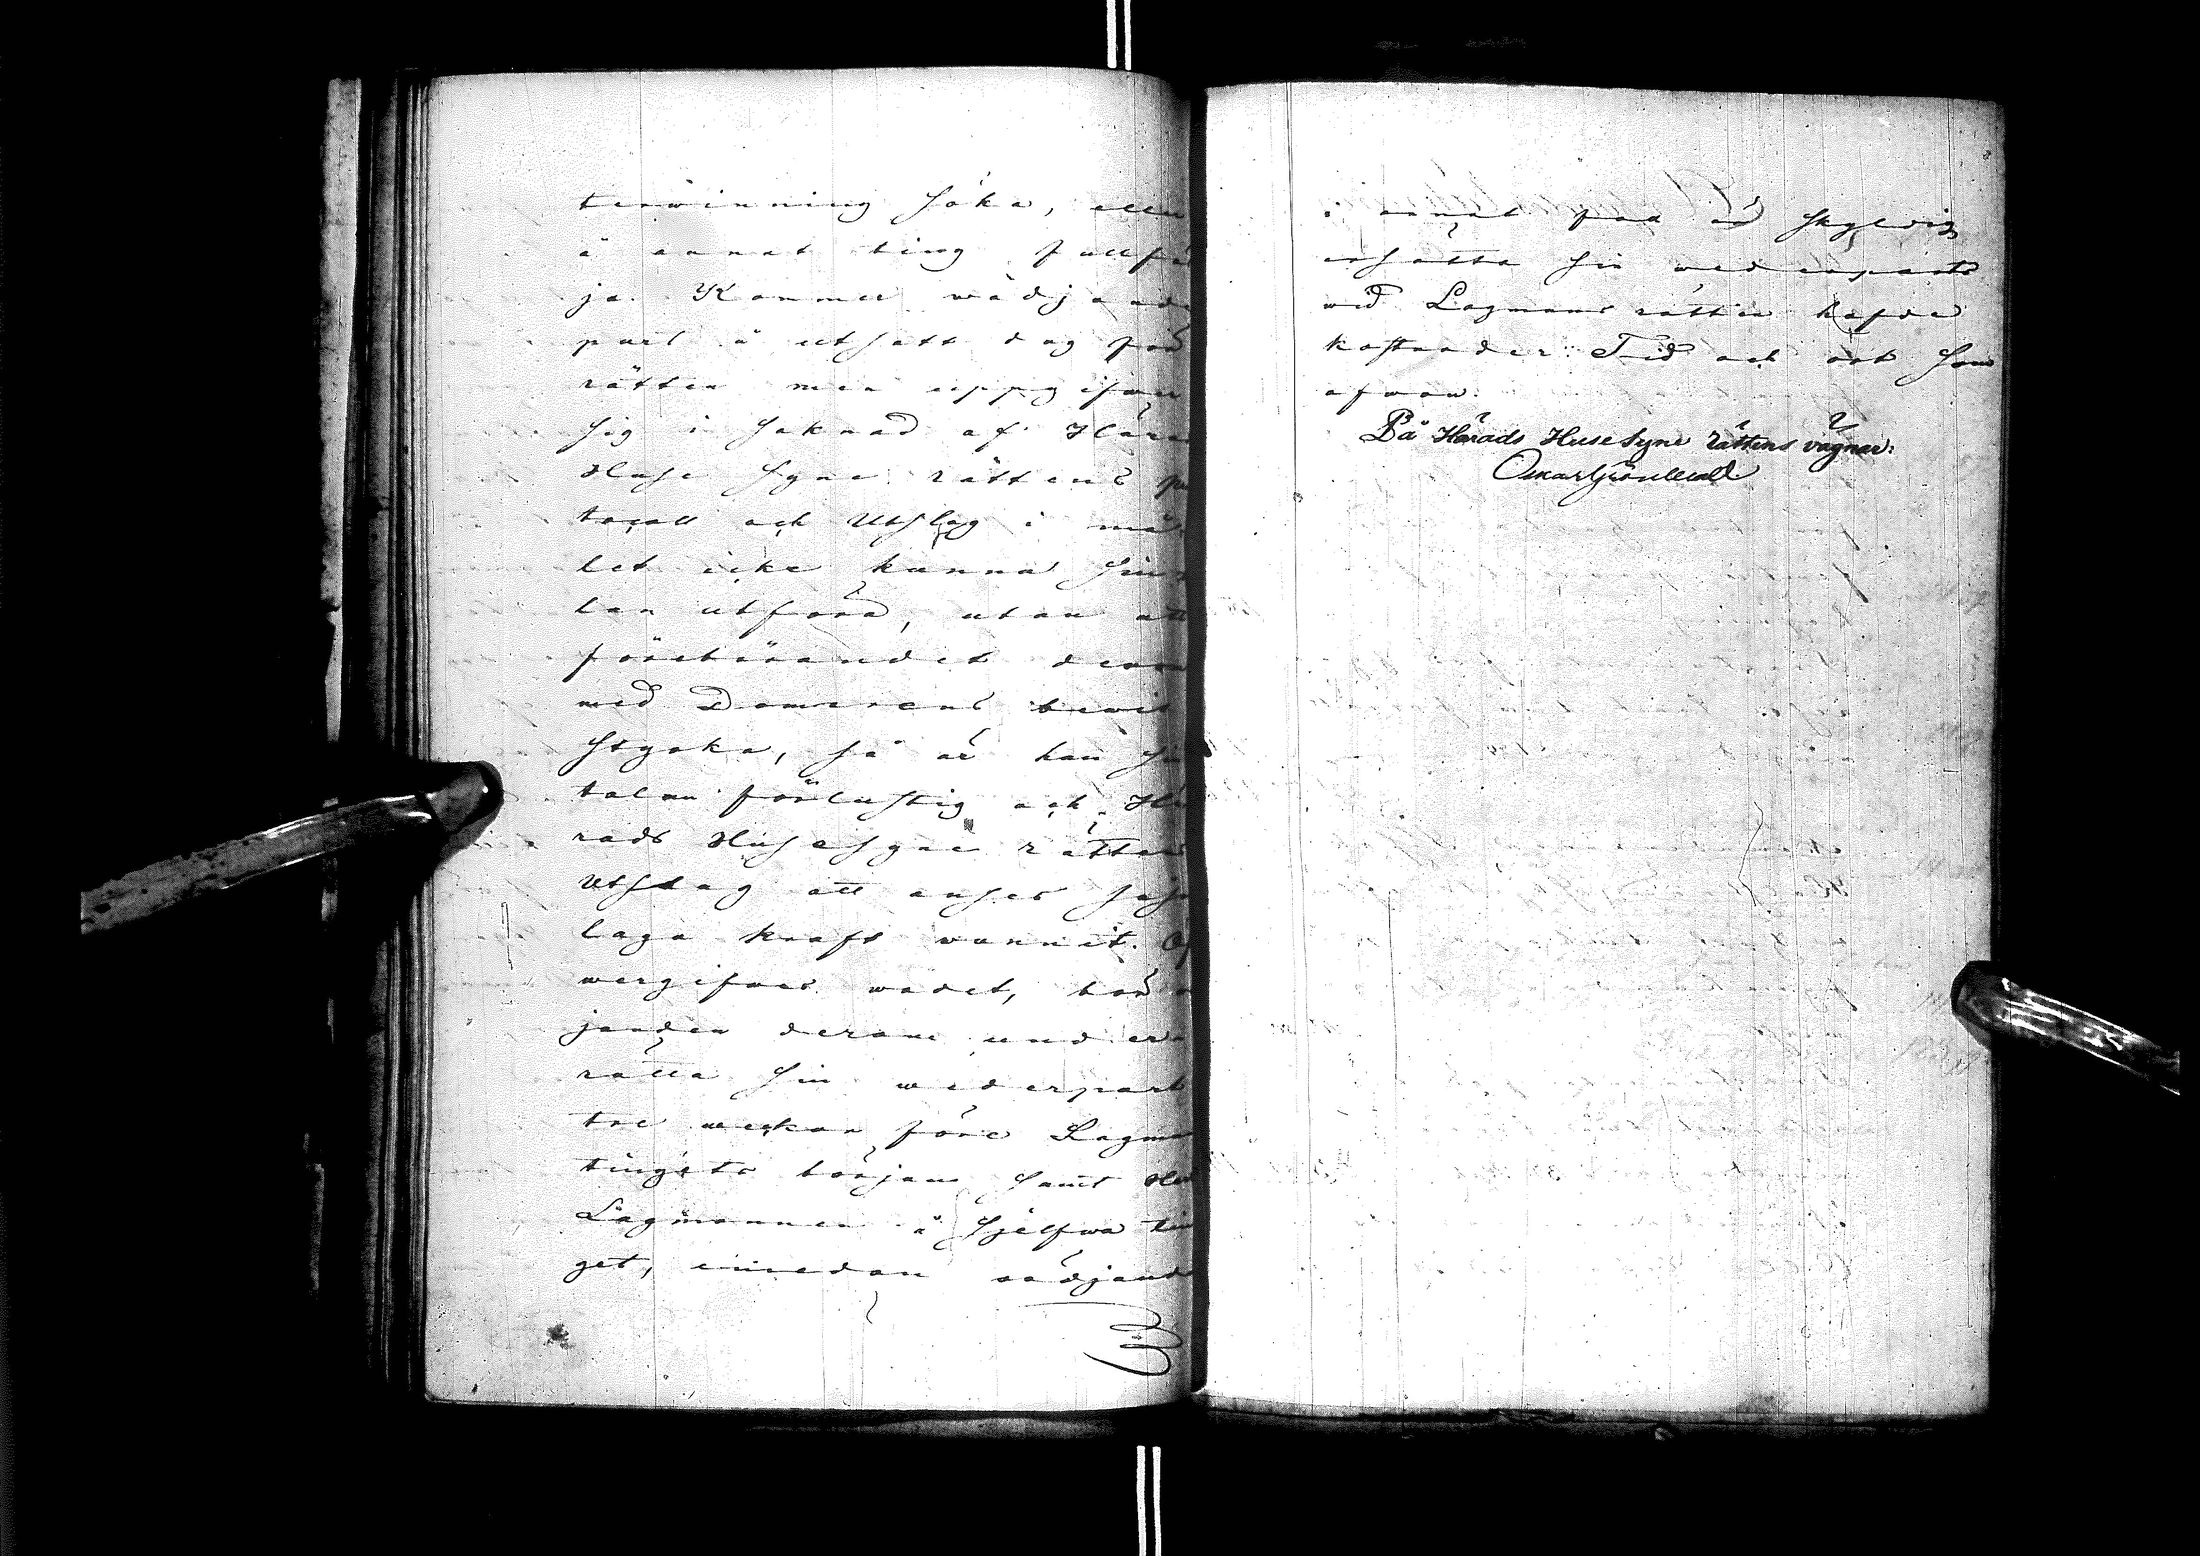 terwinning söka, eller
å annat ting fullfö
ja. Kommer wädjande
part å utsatt dag för
rätten men uppgifwer
sig i saknad af Hära
Huse Syne rättens pro
tocoll och Utslag i må
let icke kunna sin
lan utföra, utan att
förebärandet derom
med Domarens bewis
styrka, så är han sin
talan förlustig och Hä
rads Husesyne rättens
Utslag att anses saso
laga kraft wunnit. Öf
wergifwes wadet, bör
janden derom under
rätta sin wederpart
tre weckor före Lagmans
tingets början samt
Lagmannen å sjelfwa tin
get, einedan wädjande
i annat fall är skyldig
ersätta sin wederparts
wid Lagmans rätten hafde
kostnader. Tid och ort som
ofwan.
På Härads Huse Syne rättens vägnar:
Oscar Grönvall